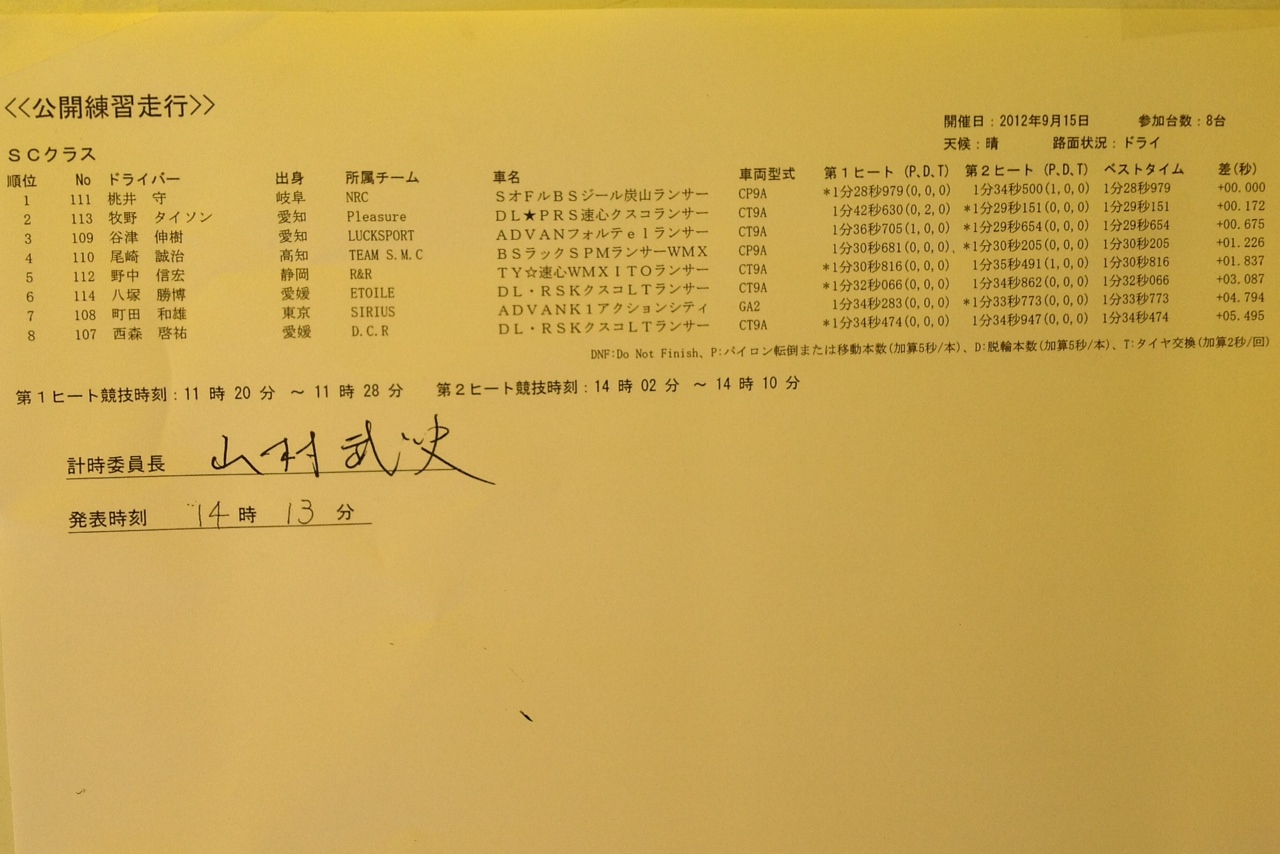 <<公開練習走行>>
開催日：2012年9月15日 参加台数：8台
天候：晴 路面状況：ドライ
ＳＣクラス
順位 No ドライバー 出身 所属チーム 車名 車両型式 第１ヒート (P,D,T) 第２ヒート (P,D,T) ベストタイム 差(秒)
1 111 桃井 守 岐阜 NRC ＳオＦルＢＳジール炭山ランサー CP9A *1分28秒979(0,0,0) 1分34秒500(1,0,0) 1分28秒979 +00.000
2 113 牧野 タイソン 愛知 Pleasure ＤＬ★ＰＲＳ速心クスコランサー CT9A 1分42秒630(0,2,0) *1分29秒151(0,0,0) 1分29秒151 +00.172
3 109 谷津 伸樹 愛知 LUCKSPORT ＡＤＶＡＮフォルテｅｌランサー CT9A 1分36秒705(1,0,0) *1分29秒654(0,0,0) 1分29秒654 +00.675
4 110 尾崎 誠治 高知 TEAM S.M.C ＢＳラックＳＰＭランサーWMX CP9A 1分30秒681(0,0,0) *1分30秒205(0,0,0) 1分30秒205 +01.226
5 112 野中 信宏 静岡 R&R ＴＹ☆速心ＷＭＸＩＴＯランサー CT9A *1分30秒816(0,0,0) 1分35秒491(1,0,0) 1分30秒816 +01.837
6 114 八塚 勝博 愛媛 ETOILE ＤＬ・ＲＳＫクスコＬＴランサー CT9A *1分32秒066(0,0,0) 1分34秒862(0,0,0) 1分32秒066 +03.087
7 108 町田 和雄 東京 SIRIUS ＡＤＶＡＮＫ１アクションシティ GA2 1分34秒283(0,0,0) *1分33秒773(0,0,0) 1分33秒773 +04.794
8 107 西森 啓祐 愛媛 D.C.R ＤＬ・ＲＳＫクスコＬＴランサー CT9A *1分34秒474(0,0,0) 1分34秒947(0,0,0) 1分34秒474 +05.495
DNF:Do Not Finish、P:パイロン転倒または移動本数(加算5秒/本)、D:脱輪本数(加算5秒/本)、T:タイヤ交換(加算2秒/回)
第１ヒート競技時刻：11 時 20 分 ～ 11 時 28 分 第２ヒート競技時刻：14 時 02 分 ～ 14 時 10 分
計時委員長 山村 武史
発表時刻 14 時 13 分